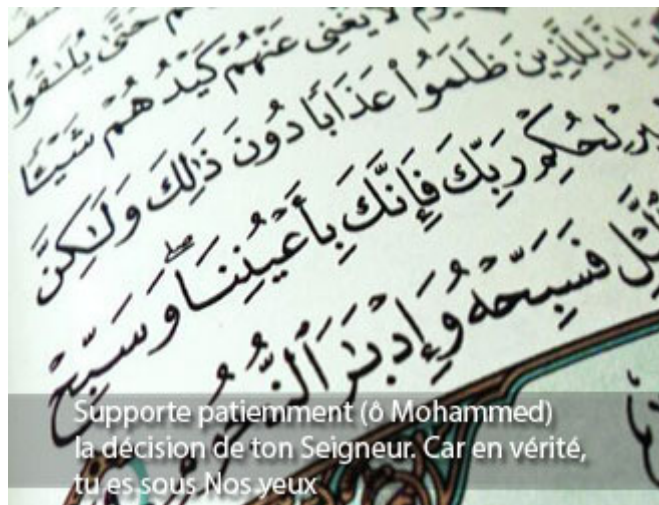 حَتَّىٰ يُلَـٰقُوا۟
يَوْمَ لَا يُغْنِى عَنْهُمْ كَيْدُهُمْ شَيْـًٔا
وَإِنَّ لِلَّذِينَ ظَلَمُوا۟ عَذَابًا دُونَ ذَٰلِكَ وَلَـٰكِنَّ
لِحُكْمِ رَبِّكَ فَإِنَّكَ بِأَعْيُنِنَا ۖ وَسَبِّحْ
فَسَبِّحْهُ وَإِدْبَـٰرَ ٱلنُّجُومِ
Supporte patiemment (ô Mohammed)
la décision de ton Seigneur. Car en vérité,
tu es sous Nos yeux